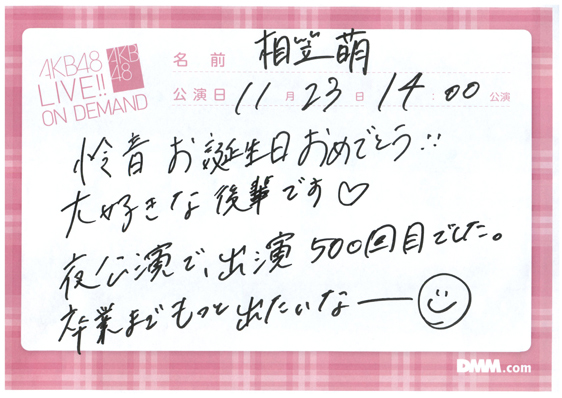 AKB48
LIVE!!
ON DEMAND
AKB
48
名前 相笠萌
公演日 11月23日 14:00公演
怜音 お誕生日おめでとう!!
大好きな後輩です♡
夜公演で、出演500回目でした。
卒業までもっと出たいなー
DMM.com